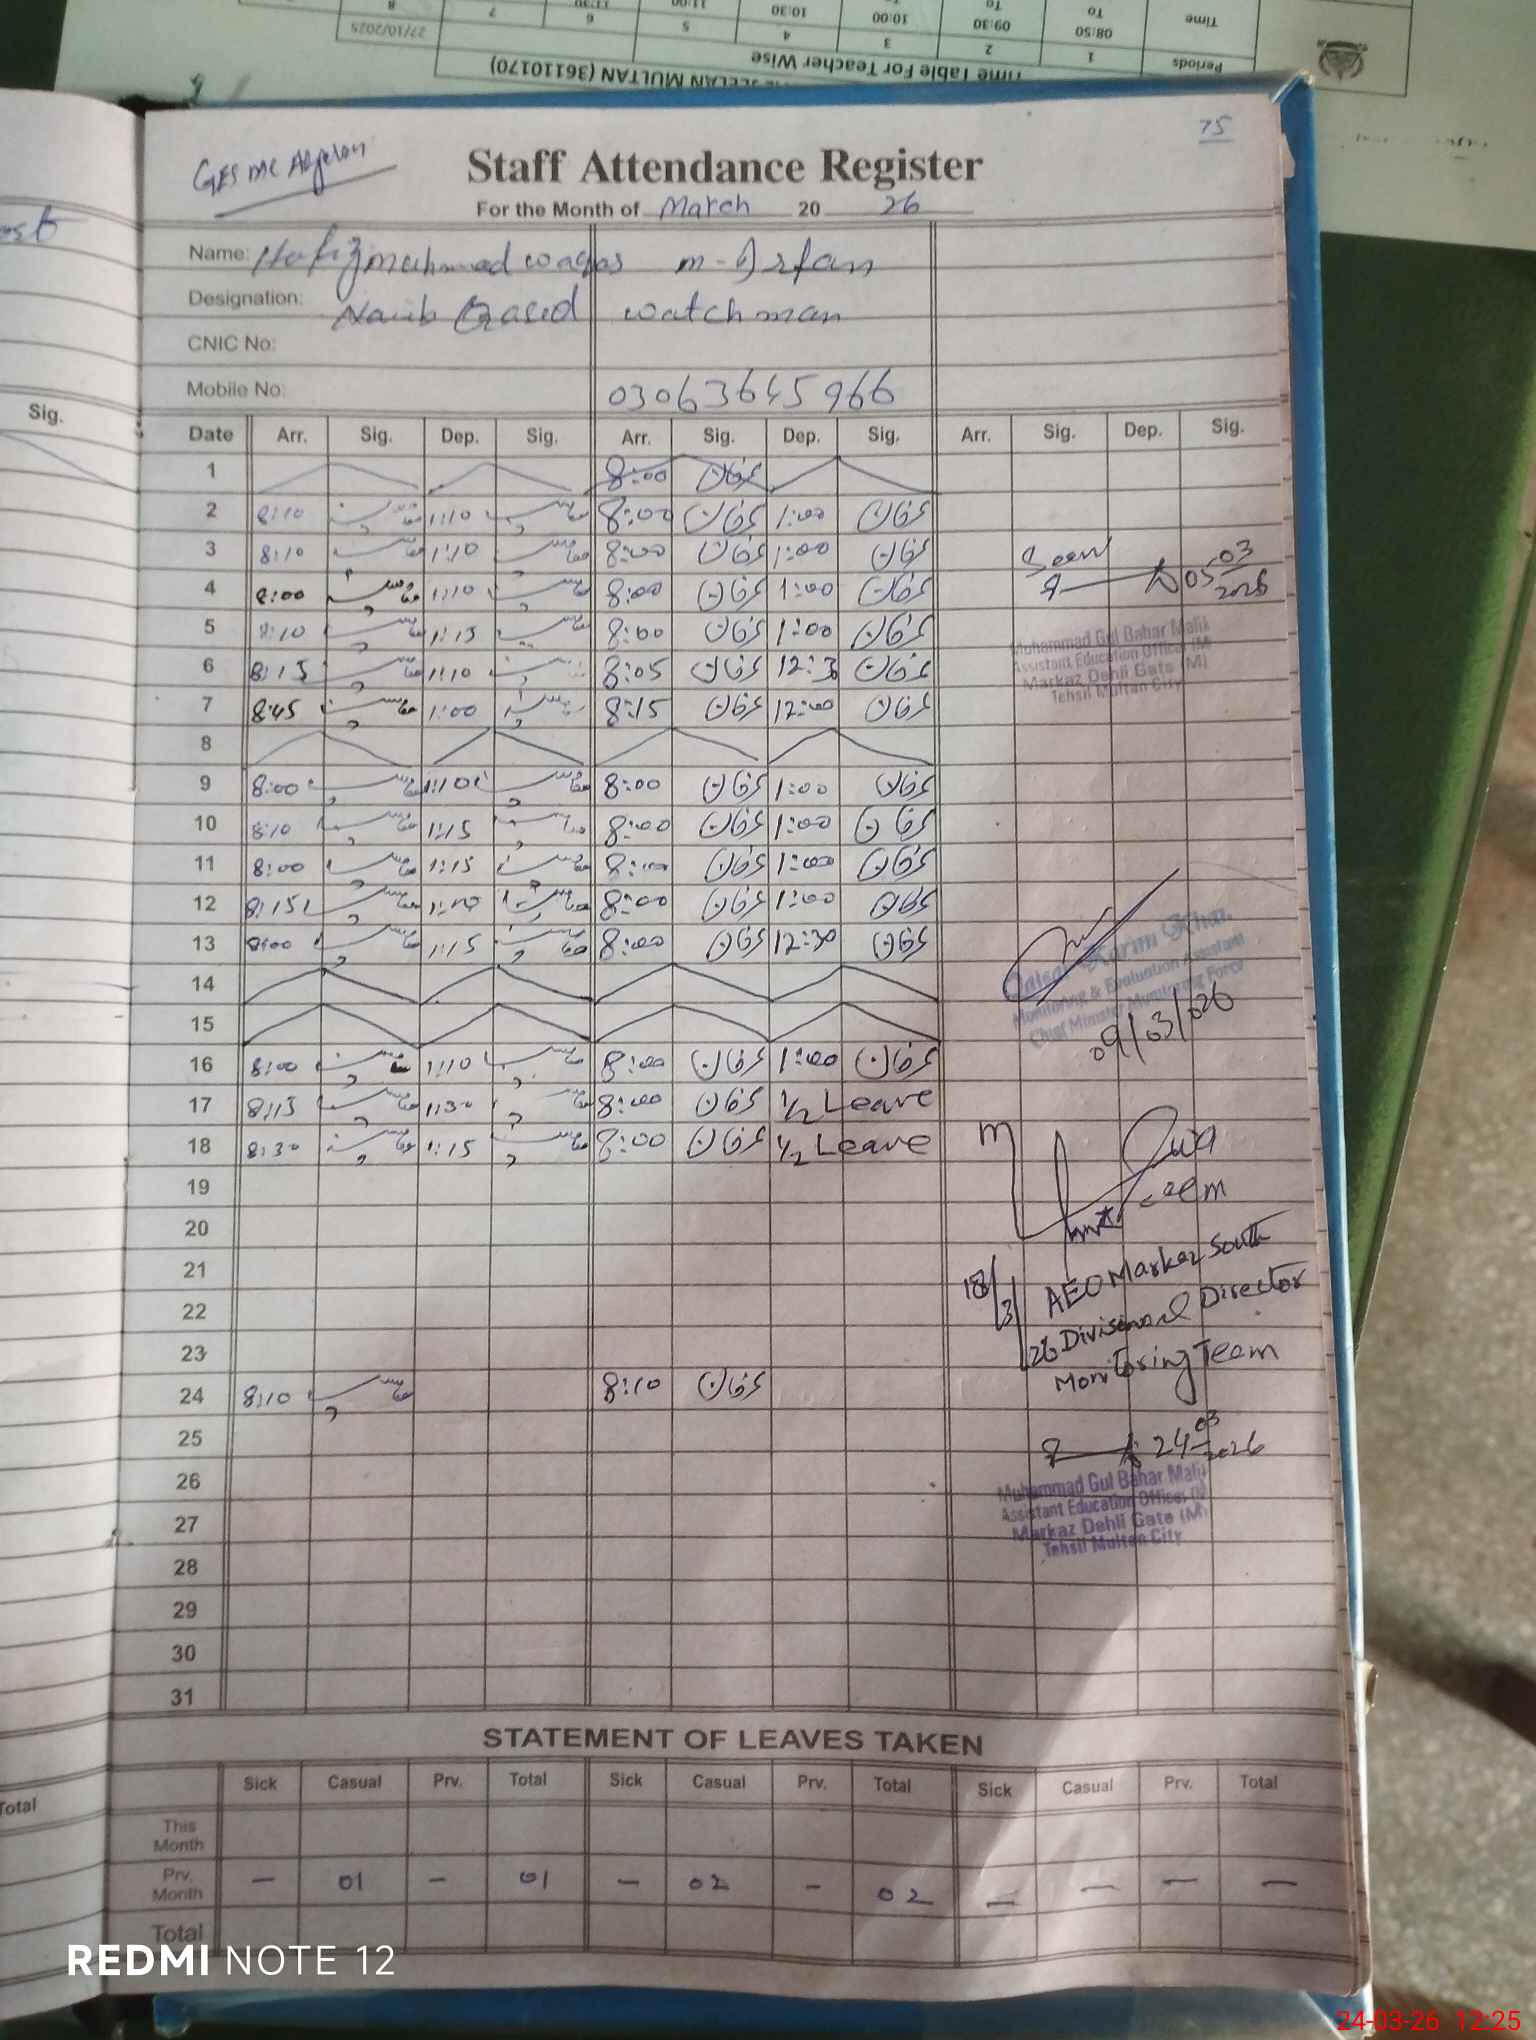 27/10/2025
Time Table For Teacher Wise
MULTAN (36110170)
Periods 1 2 3 4 5 6 7 8
Time 08:50 To 09:30 To 10:00 10:30 11:00
75
GES MC
Staff Attendance Register
For the Month of March 20 26
Name: Hafiz muhammad waqas m-Irfan
Designation: Naib Qasid watchman
CNIC No:
Mobile No: 03063645966
Sig.
Date Arr. Sig. Dep. Sig. Arr. Sig. Dep. Sig. Arr. Sig. Dep. Sig.
1 8:00 عرفان
2 8:10 وقاص 1:10 وقاص 8:00 عرفان 1:00 عرفان
3 8:10 وقاص 1:10 وقاص 8:00 عرفان 1:00 عرفان
Seen
05-03
2026
4 8:00 وقاص 1:10 وقاص 8:00 عرفان 1:00 عرفان
5 8:10 وقاص 1:15 وقاص 8:00 عرفان 1:00 عرفان
Muhammad Gul Bahar Malik
Assistant Education Officer (M)
Markaz Dehli Gate (M)
Tehsil Multan City
6 8:15 وقاص 1:10 8:05 عرفان 12:3 عرفان
7 8:45 وقاص 1:00 8:15 عرفان 12:00 عرفان
8
9 8:00 وقاص 1:10 وقاص 8:00 عرفان 1:00 عرفان
10 8:10 وقاص 1:15 وقاص 8:00 عرفان 1:00 عرفان
11 8:00 وقاص 1:15 وقاص 8:00 عرفان 1:00 عرفان
12 8:15 وقاص 1:10 وقاص 8:00 عرفان 1:00 عرفان
13 8:00 وقاص 1:15 وقاص 8:00 عرفان 12:30 عرفان
Karim Khan
Monitoring & Evaluation Assistant
Chief Minister Monitoring Force
09/03/026
14
15
16 8:00 وقاص 1:10 وقاص 8:00 عرفان 1:00 عرفان
17 8:15 وقاص 1:30 وقاص 8:00 عرفان 1/2 Leave
18 8:30 وقاص 1:15 وقاص 8:00 عرفان 1/2 Leave
19
20
21
22
23
18/3/26
AEO Markaz South
Divisional Director
Monitoring Team
24 8:10 وقاص 8:10 عرفان
24-03
2026
25
26
27
28
Muhammad Gul Bahar Malik
Assistant Education Officer (M)
Markaz Dehli Gate (M)
Tehsil Multan City
29
30
31
STATEMENT OF LEAVES TAKEN
Sick Casual Prv. Total Sick Casual Prv. Total Sick Casual Prv. Total
Total
This Month
Prv. Month — 01 — 01 — 02 — 02 — — — —
Total
REDMI NOTE 12
24-03-26 12:25